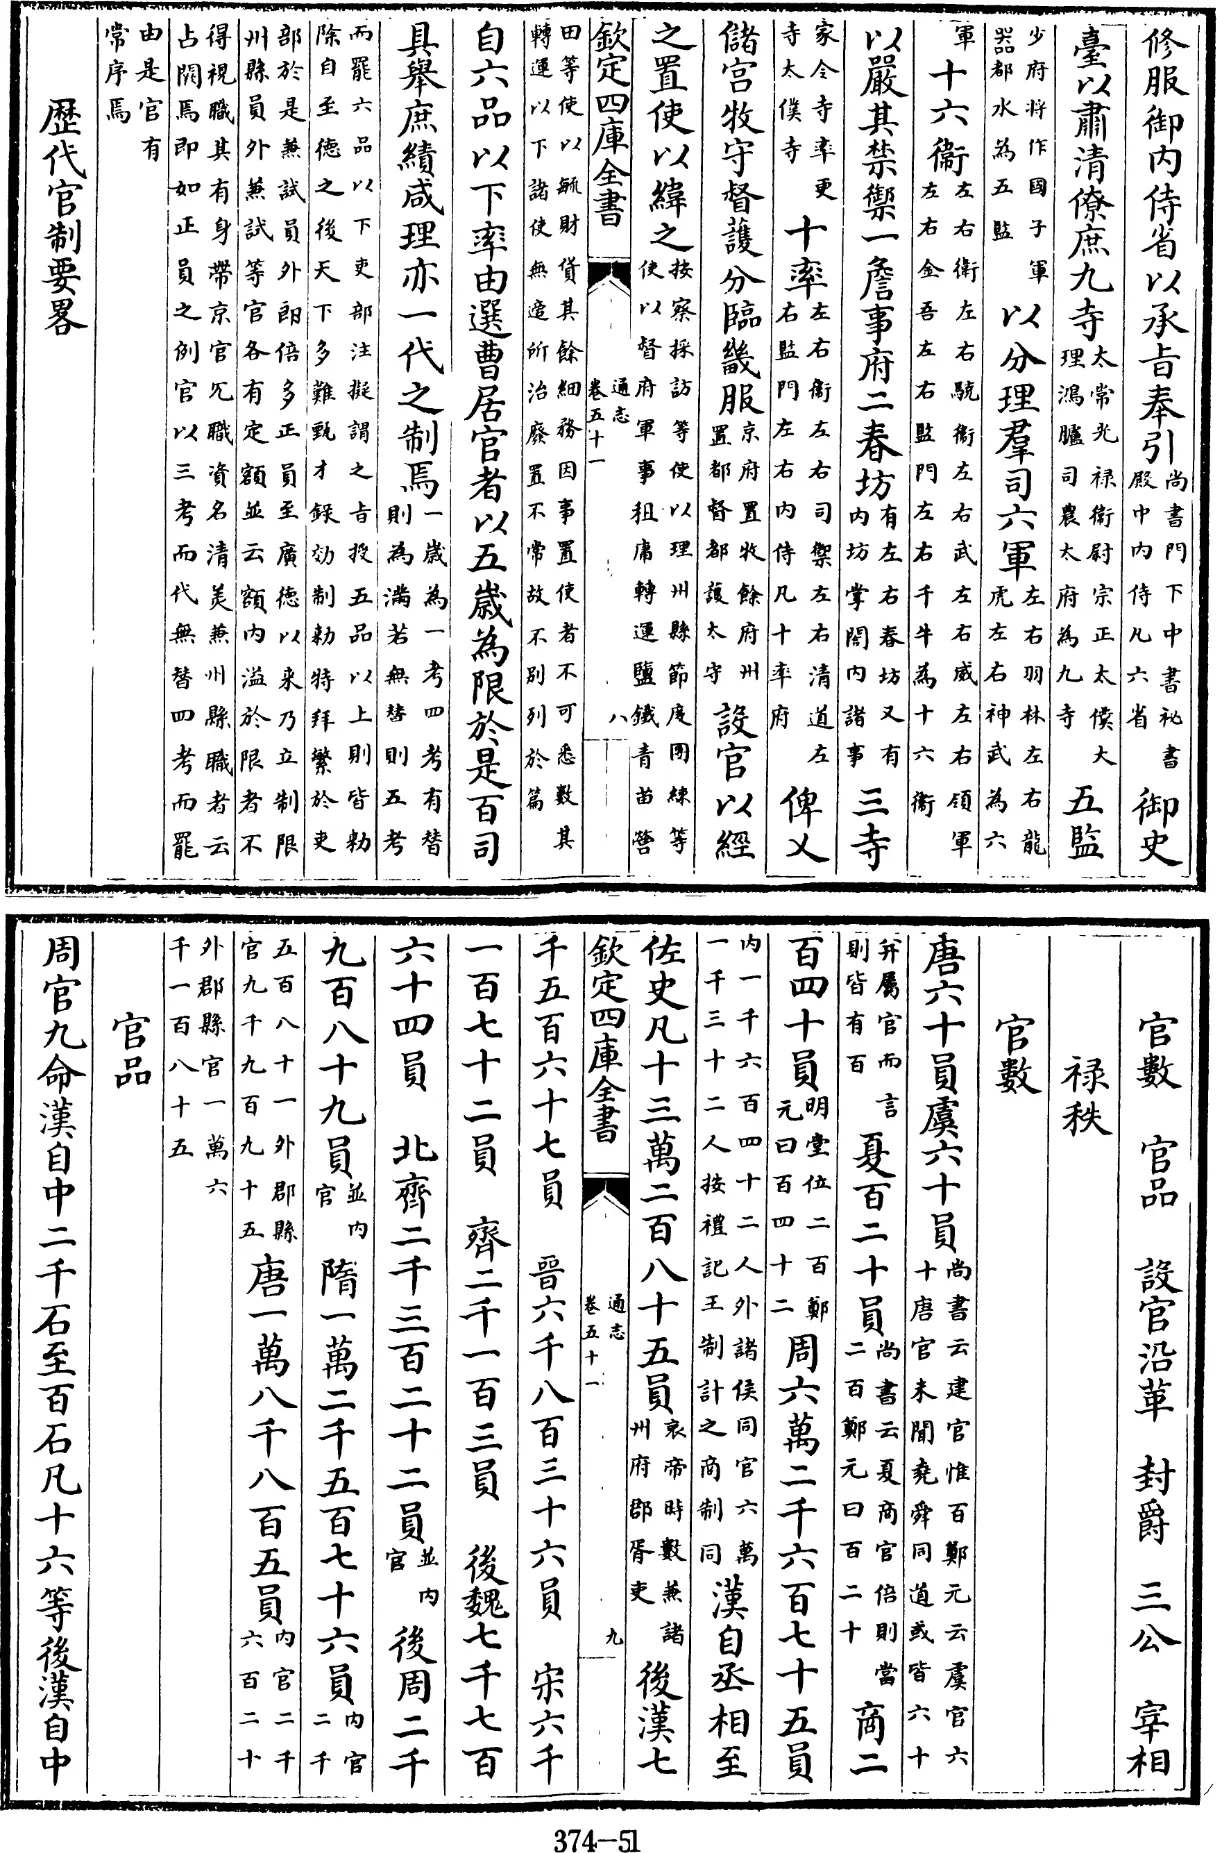 修服御内侍省以承旨奉引尚書門下中書祕書殿中内侍凡六省御史
臺以肅清僚庶九寺太常光禄衛尉宗正太僕大理鴻臚司農太府為九寺五監
少府將作國子軍器都水為五監以分理羣司六軍左右羽林左右龍虎左右神武為六
軍十六衛左右衛左右驍衛左右武左右威左右領軍左右金吾左右監門左右千牛為十六衛
以嚴其禁禦一詹事府二春坊有左右春坊又有内坊掌閤内諸事三寺
家令寺率更寺太僕寺十率左右衛左右司禦左右清道左右監門左右内侍凡十率府俾乂
儲宫牧守督護分臨畿服京府置牧餘府州置都督都護太守設官以經
之置使以緯之按察採訪等使以理州縣節度團練等使以督府軍事租庸轉運鹽鐵青苗營
欽定四庫全書
通志
卷五十一
八
田等使以毓財貨其餘細務因事置使者不可悉數其轉運以下諸使無適所治廢置不常故不别列於篇
自六品以下率由選曹居官者以五嵗為限於是百司
具舉庶績咸理亦一代之制焉一歲為一考四考有替則為滿若無替則五考
而罷六品以下吏部注擬謂之旨授五品以上則皆勅除自至德之後天下多難甄才録効制勅特拜繁於吏
部於是兼試員外郎倍多正員至廣德以来乃立制限州縣員外兼試等官各有定額並云額内溢於限者不
得視職其有身帶京官冗職資名清美兼州縣職者云占闕焉即如正員之例官以三考而代無替四考而罷
由是官有常序焉
歴代官制要畧
官數 官品 設官沿革 封爵 三公 宰相
禄秩
官數
唐六十員虞六十員尚書云建官惟百鄭元云虞官六十唐官未聞堯舜同道或皆六十
并屬官而言則皆有百夏百二十員尚書云夏商官倍則當二百鄭元曰百二十商二
百四十員明堂位二百鄭元曰百四十二周六萬二千六百七十五員
内一千六百四十二人外諸侯同官六萬一千三十二人按禮記王制計之商制同漢自丞相至
佐史凡十三萬二百八十五員哀帝時數兼諸州府郡胥吏後漢七
欽定四庫全書
通志
卷五十一
九
千五百六十七員 晉六千八百三十六員 宋六千
一百七十二員 齊二千一百三員 後魏七千七百
六十四員 北齊二千三百二十二員並内官 後周二千
九百八十九員並内官 隋一萬二千五百七十六員内官二千
五百八十一外郡縣官九千九百九十五唐一萬八千八百五員内官二千六百二十
外郡縣官一萬六千一百八十五
官品
周官九命漢自中二千石至百石凡十六等後漢自中
374-51